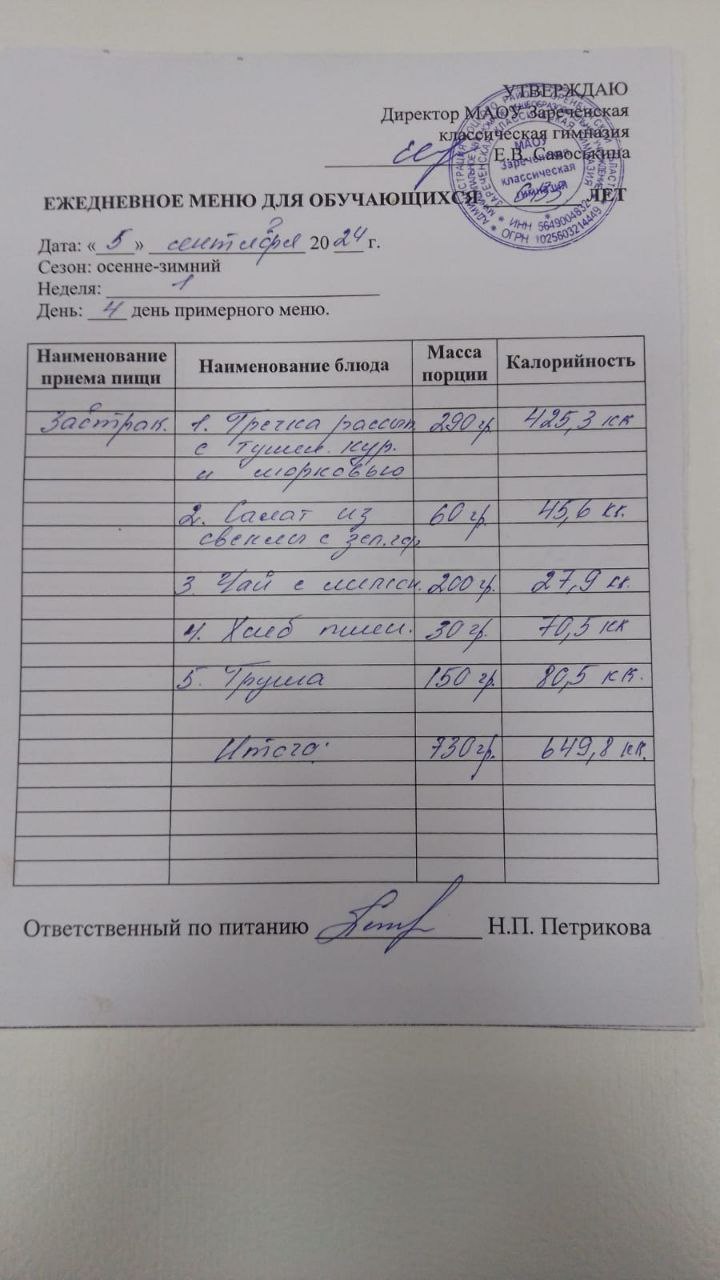 УТВЕРЖДАЮ
Директор МАОУ Зареченская
классическая гимназия
Е.В. Савоськина
МАОУ
Зареченская
классическая
гимназия
ИНН 5649004832
ОГРН 1025603214449
ЕЖЕДНЕВНОЕ МЕНЮ ДЛЯ ОБУЧАЮЩИХСЯ ЛЕТ
Дата: « 5 » сентября 20 24 г.
Сезон: осенне-зимний
Неделя: 1
День: 4 день примерного меню.
Наименование приема пищи Наименование блюда Масса порции Калорийность
Завтрак. 1. Гречка рассып 290 гр. 425,3 кк
с тушен. кур.
и морковью
2. Салат из 60 гр. 45,6 кк.
свеклы с зел.гор
3. Чай с лимон. 200 гр. 27,9 кк.
4. Хлеб пшен. 30 гр. 70,5 кк
5. Груша 150 гр. 80,5 кк.
Итого: 730 гр. 649,8 кк.
Ответственный по питанию Н.П. Петрикова